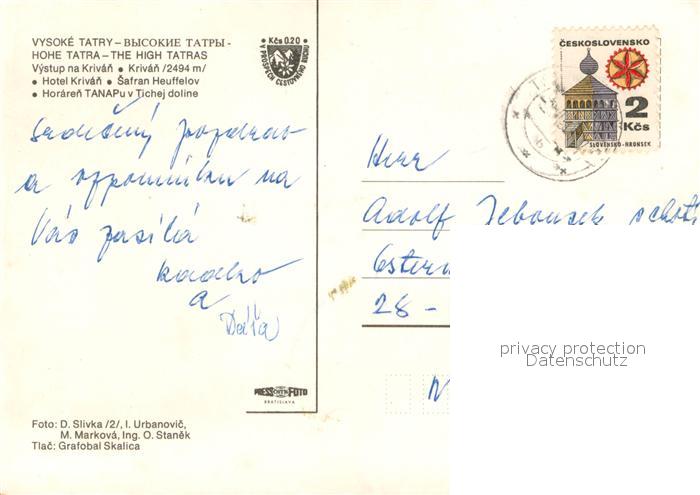 VYSOKÉ TATRY – ВЫСОКИЕ ТАТРЫ -
HOHE TATRA – THE HIGH TATRAS
Výstup na Kriváň • Kriváň /2494 m/
• Hotel Kriváň • Šafran Heuffelov
• Horáreň TANAPu v Tichej doline
Kčs 0.20
V PROSPĚCH CESTOVNÉHO RUCHU
ČESKOSLOVENSKO
2
Kčs
SLOVENSKO-HRONSEK
Srdečný pozdrav
a vzpomínku na
Vás zasílá
Radko
a
Dáša
Herr
Adolf
28 -
N
privacy protection
Datenschutz
PRESSFOTO
BRATISLAVA
Foto: D. Slivka /2/, I. Urbanovič,
M. Marková, Ing. O. Staněk
Tlač: Grafobal Skalica